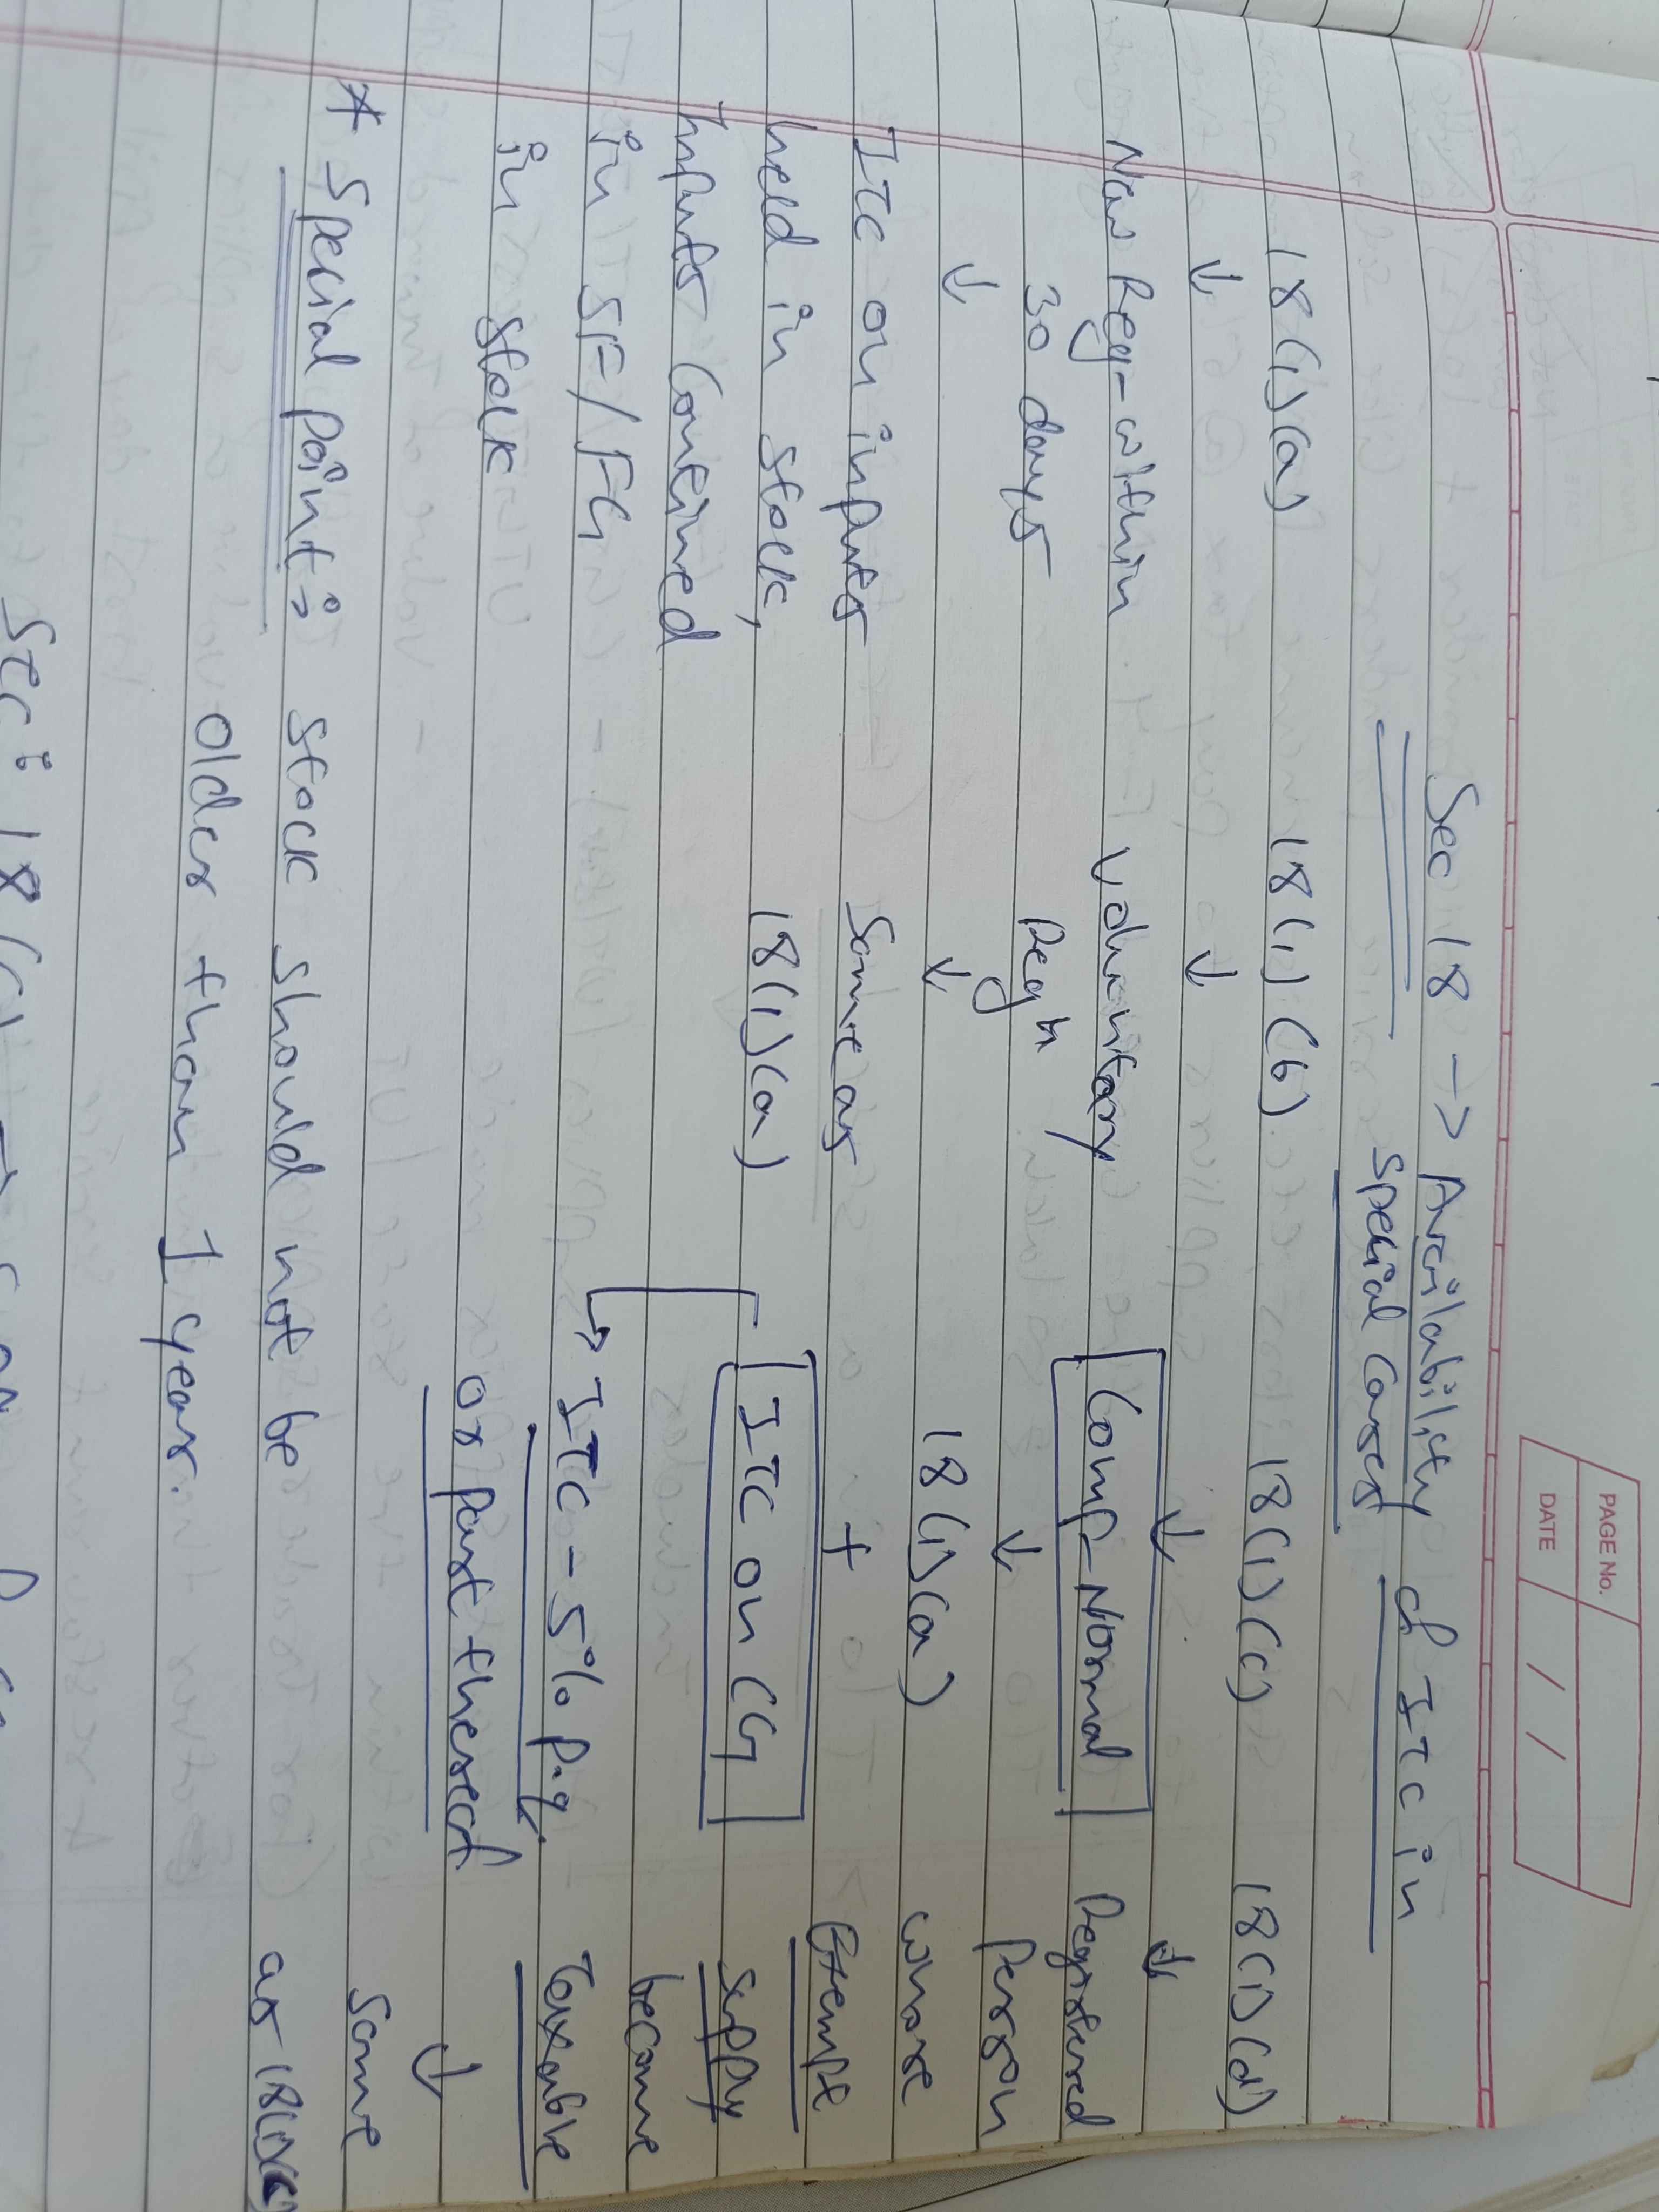 PAGE No.
DATE / /
Sec 18 → Availability of ITC in
special Cases
18(1)(a) 18(1)(b) 18(1)(c) 18(1)(d)
↓ ↓ ↓ ↓
New Reg-within
30 days
↓
ITC on inputs
held in stock,
Inputs Contained
in SF/FG
in stock
Voluntary
Regn
↓
Same as
18(1)(a)
Comp-Normal
↓
18(1)(a)
+
ITC on CG
→ ITC - 5% p.q.
or part thereof
Registered
Person
whose
Exempt
supply
become
Taxable
↓
Same
as 18(1)(c)
* Special point: stock should not be
older than 1 year.
Sec: 18